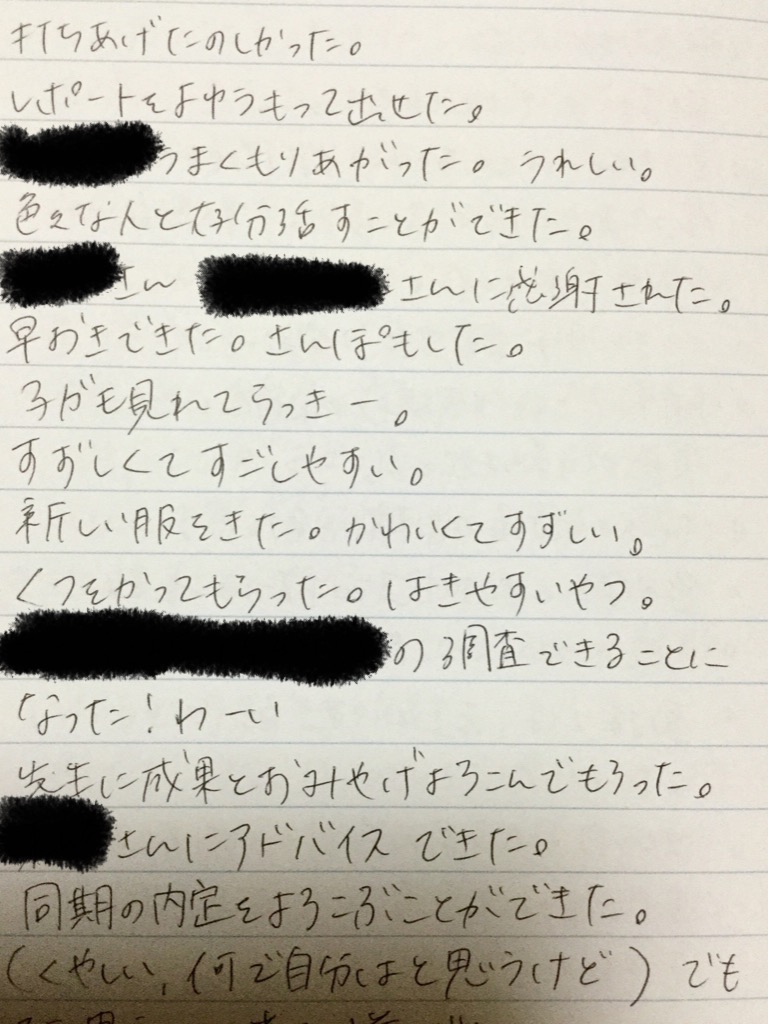 打ちあげたのしかった。
レポートをよゆうもって出せた。
うまくもりあがった。うれしい。
色々な人と大分話すことができた。
さん さんに感謝された。
早おきできた。さんぽもした。
子がも見れてらっきー。
すずしくてすごしやすい。
新しい服をきた。かわいくてすずしい。
くつをかってもらった。はきやすいやつ。
の調査できることに
なった！わーい
先生に成果とおみやげよろこんでもらった。
さんにアドバイスできた。
同期の内定をよろこぶことができた。
(くやしい、何で自分はと思うけど)でも